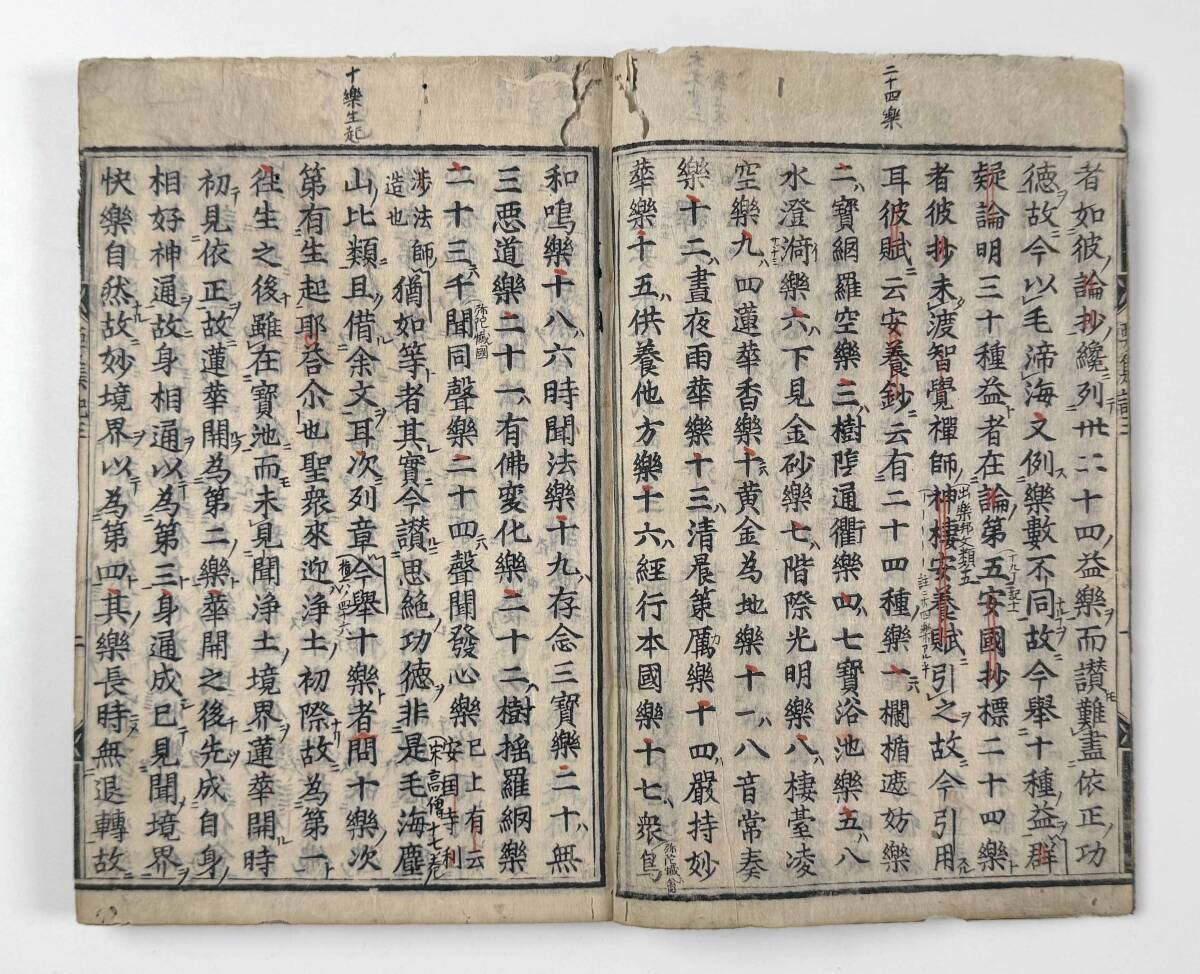 二十四樂
者如彼論抄纔列卅二十四益樂而讃難盡依正功
德故今以毛渧海又例樂數不同故今舉十種益群
疑論明三十種益者在論第五安國抄標二十四樂
者彼抄未渡智覺禪師神棲安養賦引之故今引用
耳彼賦云安養鈔云有二十四種樂一欄楯遮妨樂
二寶網羅空樂三樹蔭通衢樂四七寶浴池樂五八
水澄漪樂六下見金砂樂七階際光明樂八樓臺凌
空樂九四蓮華香樂十黄金為地樂十一八音常奏
樂十二晝夜雨華樂十三清晨策厲樂十四嚴持妙
華樂十五供養他方樂十六經行本國樂十七衆鳥
十樂生起
和鳴樂十八六時聞法樂十九存念三寶樂二十無
三惡道樂二十一有佛変化樂二十二樹揺羅網樂
二十三千聞同聲樂二十四聲聞發心樂已上有云安国寺利
渉法師造也猶如等者其實今讃思絶功德非是毛海塵
山比類且借余文耳次列章今舉十樂者問十樂次
第有生起耶荅尒也聖衆來迎浄土初際故為第一
往生之後雖在寶池而未見聞浄土境界蓮華開時
初見依正故蓮華開為第二樂華開之後先成自身
相好神通故身相通以為第三身通成已見聞境界
快樂自然故妙境界以為第四其樂長時無退轉故